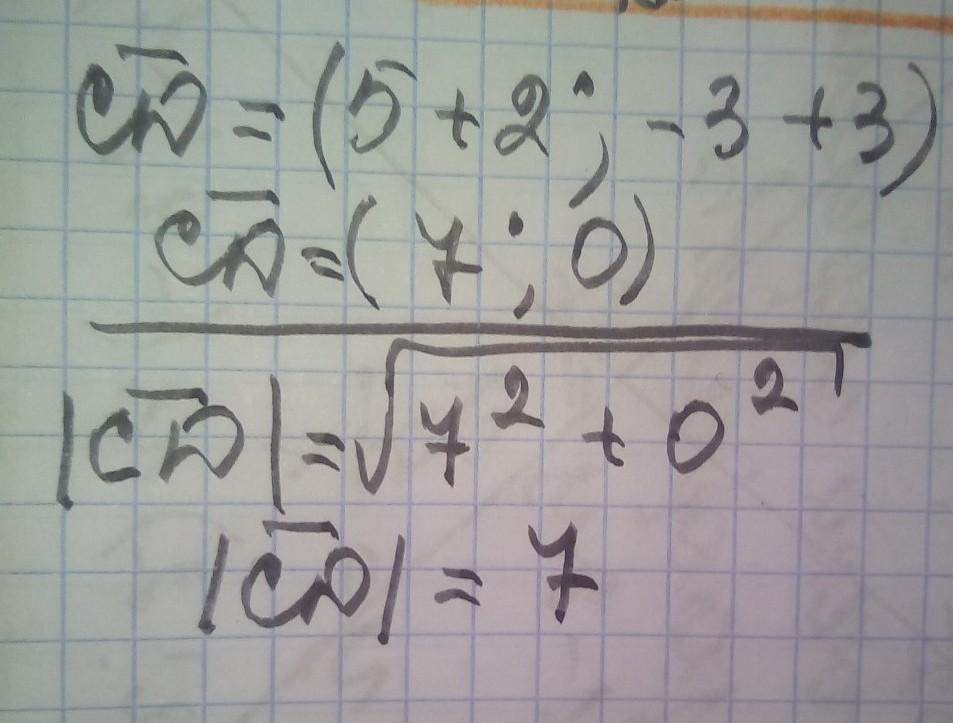 CD̅ = (5 + 2 ; - 3 + 3)
CD̅ = (7 ; 0)
|CD̅| = √7² + 0²
|CD̅| = 7